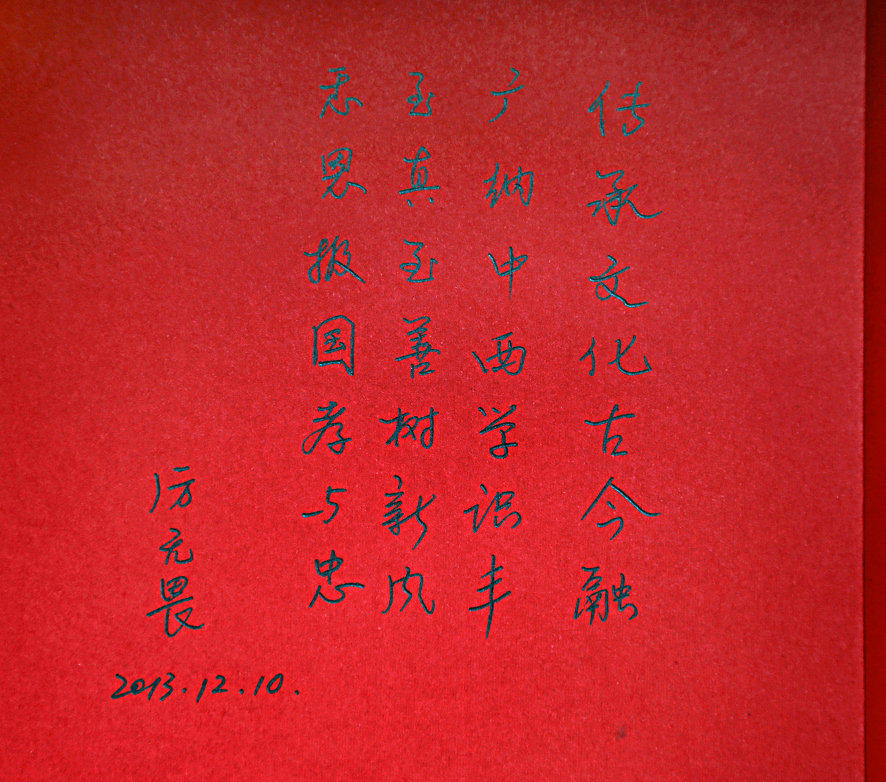 传承文化古今融
广纳中西学识丰
至真至善树新风
恩报国孝与忠
厉无畏
2013.12.10.